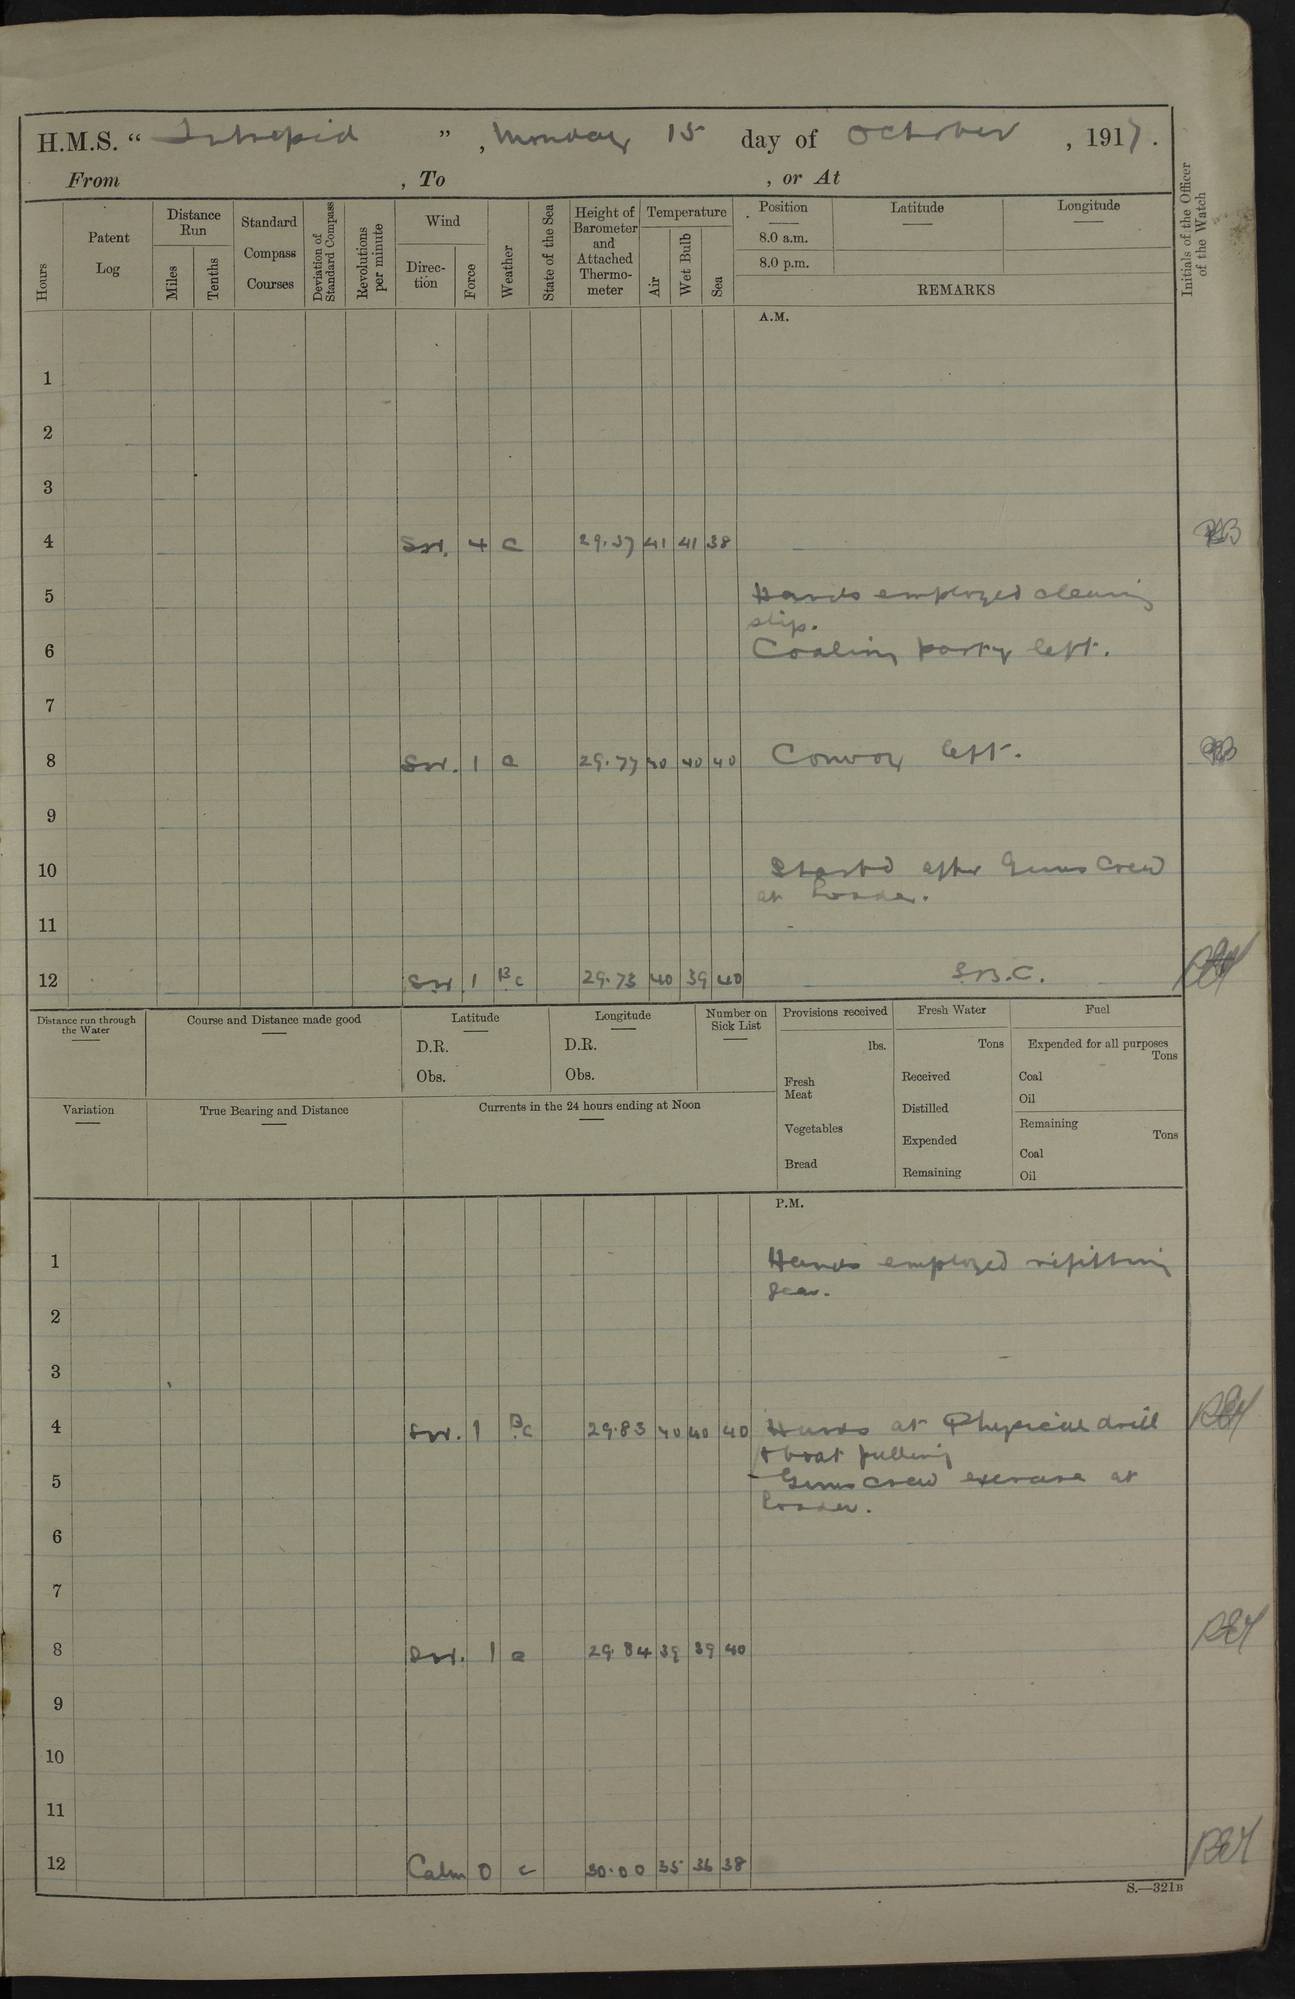 H.M.S. “ Intrepid ” , Monday 15 day of October , 1917 .
From , To , or At
Hours
Patent Log
Distance Run
Miles
Tenths
Standard Compass Courses
Deviation of Standard Compass
Revolutions per minute
Wind
Direc-tion
Force
Weather
State of the Sea
Height of Barometer and Attached Thermo-meter
Temperature
Air
Wet Bulb
Sea
Position
8.0 a.m.
8.0 p.m.
Latitude
Longitude
REMARKS
Initials of the Officer of the Watch
A.M.
1
2
3
4 SW. 4 c 29.37 41 41 38
5 Hands employed cleaning
ship.
6 Coaling party left.
7
8 SW. 1 c 29.77 40 40 40 Convoy left.
9
10 after Guns Crew
at Loader.
11
12 SW. 1 Bc 29.73 40 39 40 S.B.C.
Distance run through the Water
Course and Distance made good
Latitude
D.R.
Obs.
Longitude
D.R.
Obs.
Number on Sick List
Provisions received
lbs.
Fresh Meat
Vegetables
Bread
Fresh Water
Tons
Received
Distilled
Expended
Remaining
Fuel
Expended for all purposes
Tons
Coal
Oil
Remaining
Tons
Coal
Oil
Variation
True Bearing and Distance
Currents in the 24 hours ending at Noon
P.M.
1 Hands employed refitting
gear.
2
3
4 SW. 1 Bc 29.83 40 40 40 Hands at Physical drill
& boat pulling
5 Guns crew exercise at
loader.
6
7
8 SW. 1 c 29.84 39 39 40
9
10
11
12 Calm 0 c 30.00 35 36 38
S.—321B